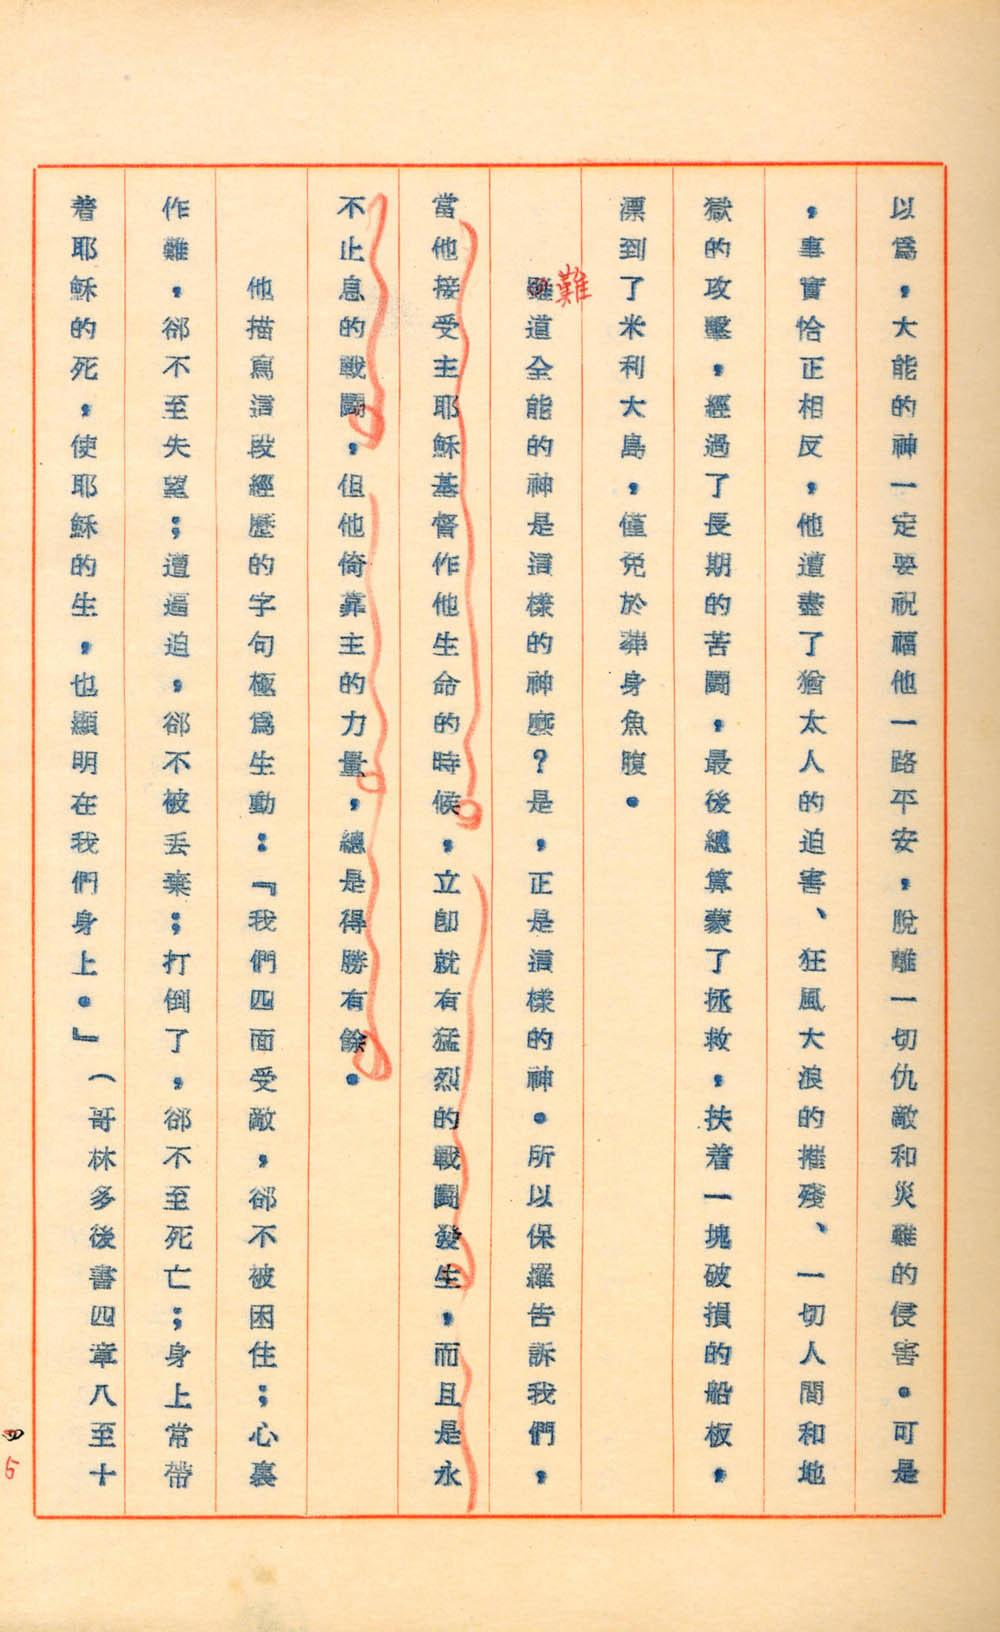 以為，大能的神一定要祝福他一路平安，脫離一切仇敵和災難的侵害。可是
，事實恰正相反，他遭盡了猶太人的迫害、狂風大浪的摧殘、一切人間和地
獄的攻擊，經過了長期的苦鬪，最後總算蒙了拯救，扶着一塊破損的船板，
漂到了米利大島，僅免於葬身魚腹。
難道全能的神是這樣的神麼？是，正是這樣的神。所以保羅告訴我們，
當他接受主耶穌基督作他生命的時候，立即就有猛烈的戰鬪發生，而且是永
不止息的戰鬪，但他倚靠主的力量，總是得勝有餘。
他描寫這段經歷的字句極為生動：『我們四面受敵，郤不被困住；心裏
作難，郤不至失望；遭逼迫，郤不被丟棄；打倒了，郤不至死亡；身上常帶
着耶穌的死，使耶穌的生，也顯明在我們身上。』（哥林多後書四章八至十
四
5